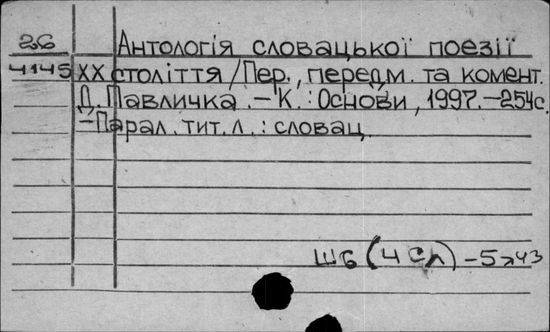 26 Антологія словацької поезії
4145 ХХ століття / Пер., передм. та комент.
Д. Павличка. – К. : Основи, 1997. – 254с.
– Парал. тит. л. : словац
Ш6 (4 Сл) – 5